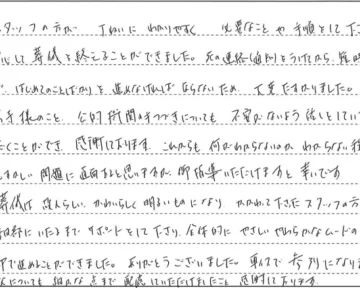 スタッフの方が 丁ねいに わかりやすく 必要なことや手順をして下さ
心して葬儀を終えることができました。
はじめてのことばかりで 進めなければならないため 大変たすかりました。
お寺様のこと、公的機関の手つづきについても 不安がないよう話をしてい
だくことができ、感謝しております。これからも 何がわからないのか わからない
むずかしい問題に直面すると思いますが 御指導いただけますと幸いです
葬儀は 故人らしい、かわいらしく 明るいものになり、かかわって下さったスタッフの方
細部にいたるまでサポートをして下さり、全体的に やさしい やわらかなムードの
中で進めることができました。ありがとうございました。
についても 細かな点まで 配慮していただけましたこと 感謝しております。